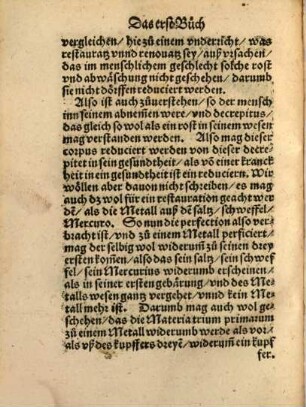 Das erst Büch
vergleichen / hie zů einem vnderricht / was
restauratz vnnd renouatz sey / auß vrsachen /
das im menschlichem geschlecht solche rost
vnd abwäschung nicht geschehen / darumb
sie nicht dörffen reduciert werden.
Also ist auch züuerstehen / so der mensch
inn seinem abnemmen were / vnd decrepitus /
das gleich so wol als ein rost in seinem wesen
mag verstanden werden. Also mag dieser
corpus reduciert werden von dieser decre-
pitet in sein gesundtheit / als võ einer kranck
heit in ein gesundtheit ist ein reducieru. Wir
wöllen aber dauon nicht schreiben / es mag
auch dz wol für ein restauration geacht wer
dẽ / als die Metall auß dẽ saltz / schweffel /
Mercuro. So nun die perfection also ver-
bracht ist / vnd zů einem Metall perficiert /
mag der selbig wol widerum̃ zů seinen drey
ersten kom̃en / also das sein saltz / sein schwef
fel / sein Mercurius widerumb erscheinen /
als in seiner ersten gebärung / vnd des Me-
talls wesen gantz vergehet / vnnd kein Me-
tall mehr ist. Darumb mag auch wol ge-
schehen / das die Materia trium primarum
zů einem Metall widerumb werde als vor /
als vß des kupffers dreyẽ / widerum̃ ein kupf
fer.